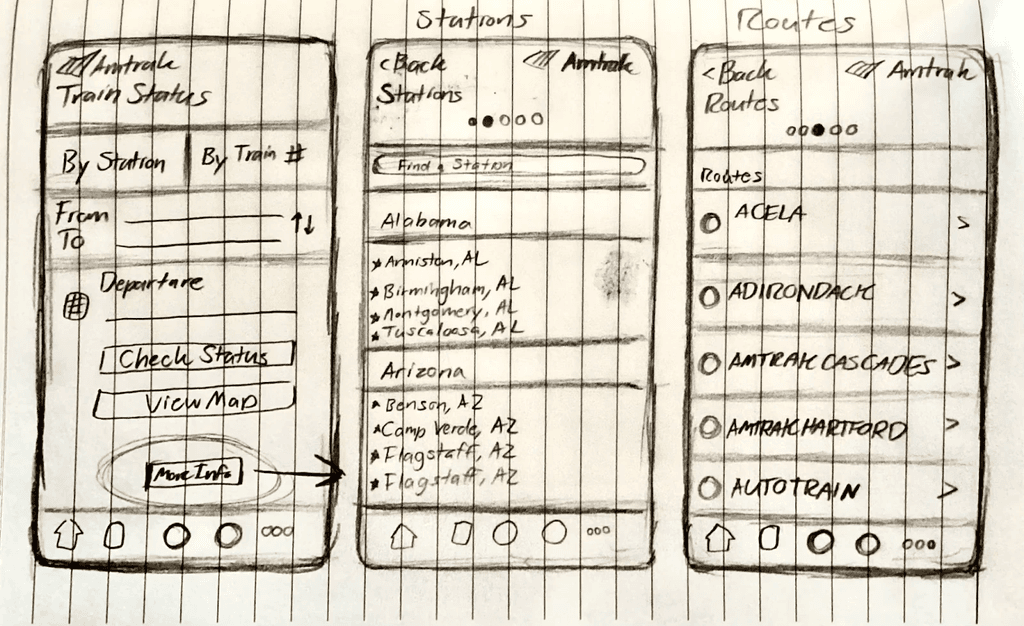 Stations
Routes
Amtrak
Train Status
By Station
By Train #
From
To
Departure
Check Status
View Map
More Info
<Back
Amtrak
Stations
Find a Station
Alabama
Anniston, AL
Birmingham, AL
Montgomery, AL
Tuscaloosa, AL
Arizona
Benson, AZ
Camp Verde, AZ
Flagstaff, AZ
Flagstaff, AZ
<Back
Amtrak
Routes
Routes
ACELA >
ADIRONDACK >
AMTRAK CASCADES >
AMTRAK HARTFORD >
AUTO TRAIN >